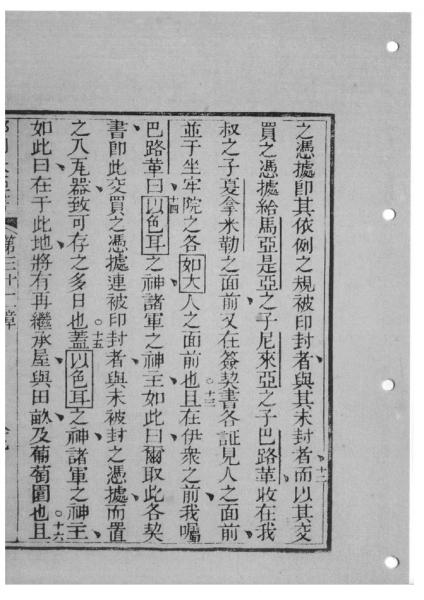 之憑據卽其依例之規被印封者與其未封者十二而以其交
買之憑據給馬亞是亞之子尼來亞之子巴路革收在我
叔之子夏拿米勒之面前又在簽契書各証見人之面前
並于坐牢院之各如大人之面前也○十三且在伊衆之前我囑
巴路革曰十四以色耳之神諸軍之神主如此曰爾取此各契
書卽此交買之憑據連被印封者與未被封之憑據而置
之入瓦器致可存之多日也○十五蓋以色耳之神諸軍之神主
如此曰在于此地將有再繼承屋與田畝及葡萄園也○十六且
第三十二章